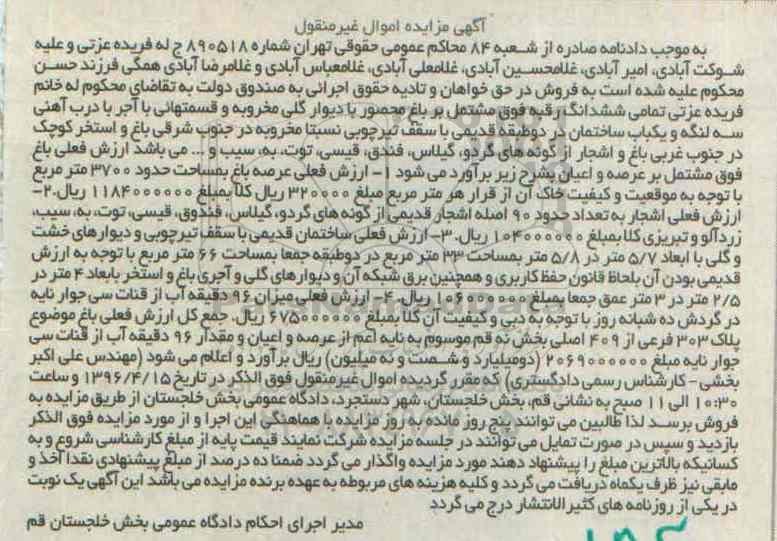 آگهی مزایده اموال غیرمنقول
به موجب دادنامه صادره از شعبه ۸۴ محاکم عمومی حقوقی تهران شماره ۸۹۰۵۱۸ ج له فریده عزتی و علیه
شوکت آبادی، امیر آبادی، غلامحسین آبادی، غلامعلی آبادی، غلامعباس آبادی و غلامرضا آبادی همگی فرزند حسن
محکوم علیه شده است به فروش در حق خواهان و تادیه حقوق اجرائی به صندوق دولت به تقاضای محکوم له خانم
فریده عزتی تمامی ششدانگ رقبه فوق مشتمل بر باغ محصور با دیوار گلی مخروبه و قسمتهائی با آجر با درب آهنی
سه لنگه و یکباب ساختمان در دوطبقه قدیمی با سقف تیرچوبی نسبتا مخروبه در جنوب شرقی باغ و استخر کوچک
در جنوب غربی باغ و اشجار از گونه های گردو، گیلاس، فندق، قیسی، توت، به، سیب و ... می باشد ارزش فعلی باغ
فوق مشتمل بر عرصه و اعیان بشرح زیر برآورد می شود ۱- ارزش فعلی عرصه باغ بمساحت حدود ۳۷۰۰ متر مربع
با توجه به موقعیت و کیفیت خاک آن از قرار هر متر مربع مبلغ ۳۲۰۰۰۰ ریال کلا بمبلغ ۱۱۸۴۰۰۰۰۰۰ ریال.۲-
ارزش فعلی اشجار به تعداد حدود ۹۰ اصله اشجار قدیمی از گونه های گردو، گیلاس، فندوق، قیسی، توت، به، سیب،
زردآلو و تبریزی کلا بمبلغ ۱۰۴۰۰۰۰۰۰ ریال.۳- ارزش فعلی ساختمان قدیمی با سقف تیرچوبی و دیوارهای خشت
و گلی با ابعاد ۵/۷ متر در ۵/۸ متر بمساحت ۳۳ متر مربع در دوطبقه جمعا بمساحت ۶۶ متر مربع با توجه به ارزش
قدیمی بودن آن بلحاظ قانون حفظ کاربری و همچنین برق شبکه آن و دیوارهای گلی و آجری باغ و استخر بابعاد ۴ متر در
۲/۵ متر در ۳ متر عمق جمعا بمبلغ ۱۰۶۰۰۰۰۰۰ ریال. ۴- ارزش فعلی میزان ۹۶ دقیقه آب از قنات سی جوار نایه
در گردش ده شبانه روز با توجه به دبی و کیفیت آن کلا بمبلغ ۶۷۵۰۰۰۰۰۰ ریال. جمع کل ارزش فعلی باغ موضوع
پلاک ۳۰۳ فرعی از ۴۰۹ اصلی بخش نه قم موسوم به نایه اعم از عرصه و اعیان و مقدار ۹۶ دقیقه آب از قنات سی
جوار نایه مبلغ ۲۰۶۹۰۰۰۰۰۰ (دومیلیارد و شصت و نه میلیون) ریال برآورد و اعلام می شود (مهندس علی اکبر
بخشی - کارشناس رسمی دادگستری) که مقرر گردیده اموال غیرمنقول فوق الذکر در تاریخ ۱۳۹۶/۴/۱۵ و ساعت
۱۰:۳۰ الی ۱۱ صبح به نشانی قم، بخش خلجستان، شهر دستجرد، دادگاه عمومی بخش خلجستان از طریق مزایده به
فروش برسد لذا طالبین می توانند پنج روز مانده به روز مزایده با هماهنگی این اجرا و از مورد مزایده فوق الذکر
بازدید و سپس در صورت تمایل می توانند در جلسه مزایده شرکت نمایند قیمت پایه از مبلغ کارشناسی شروع و به
کسانیکه بالاترین مبلغ را پیشنهاد دهند مورد مزایده واگذار می گردد ضمنا ده درصد از مبلغ پیشنهادی نقدا اخذ و
مابقی نیز ظرف یکماه دریافت می گردد و کلیه هزینه های مربوطه به عهده برنده مزایده می باشد این آگهی یک نوبت
در یکی از روزنامه های کثیرالانتشار درج می گردد
مدیر اجرای احکام دادگاه عمومی بخش خلجستان قم